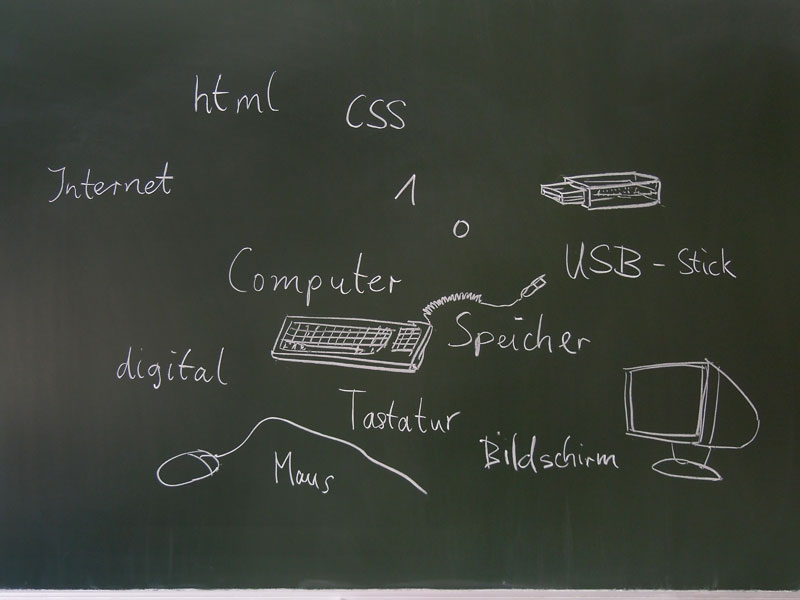 html
CSS
Internet
1
0
USB-Stick
Computer
Speicher
digital
Tastatur
Bildschirm
Maus